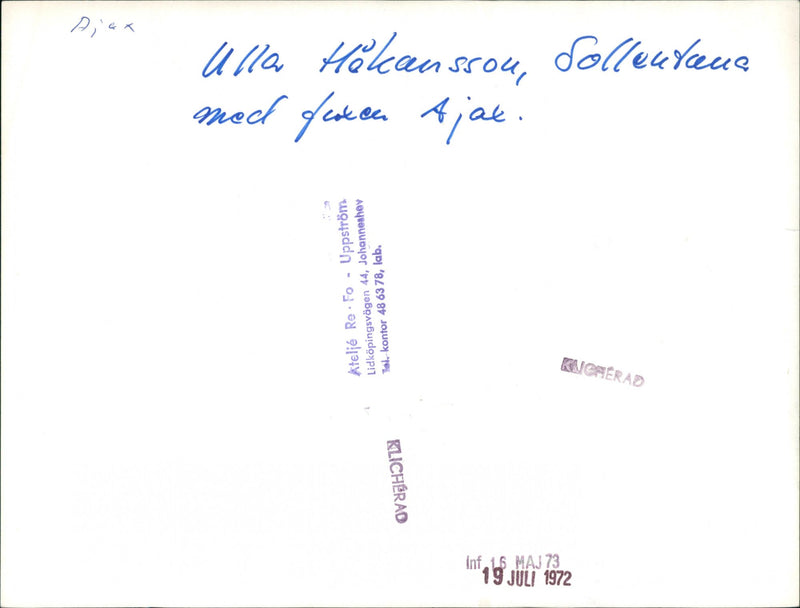 Ajax
Ulla Håkansson, Sollentuna
med fuxen Ajax.
Ateljé Re-Fo - Uppström
Lidköpingsvägen 44, Johanneshov
Tel. kontor 48 63 78, lab.
KLICHÉRAD
KLICHÉRAD
Inf 16 MAJ 73
19 JULI 1972